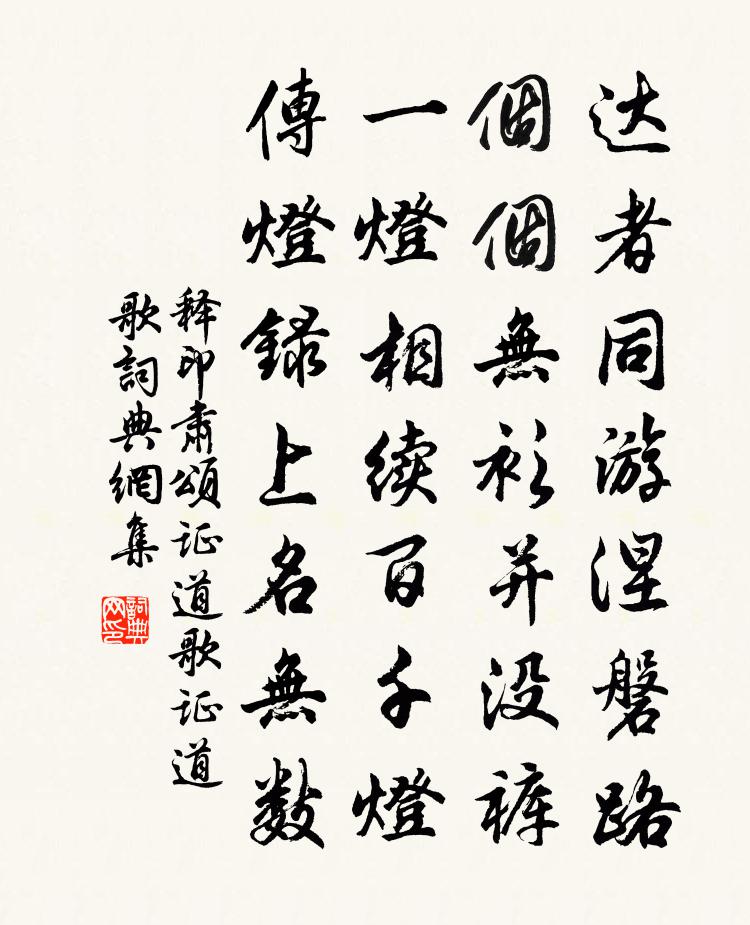 达者同游涅磐路
個個無衫并没裤
一燈相续百千燈
傳燈録上名無数
释印肃颂证道歌证道
歌詞典網集
詞典网印